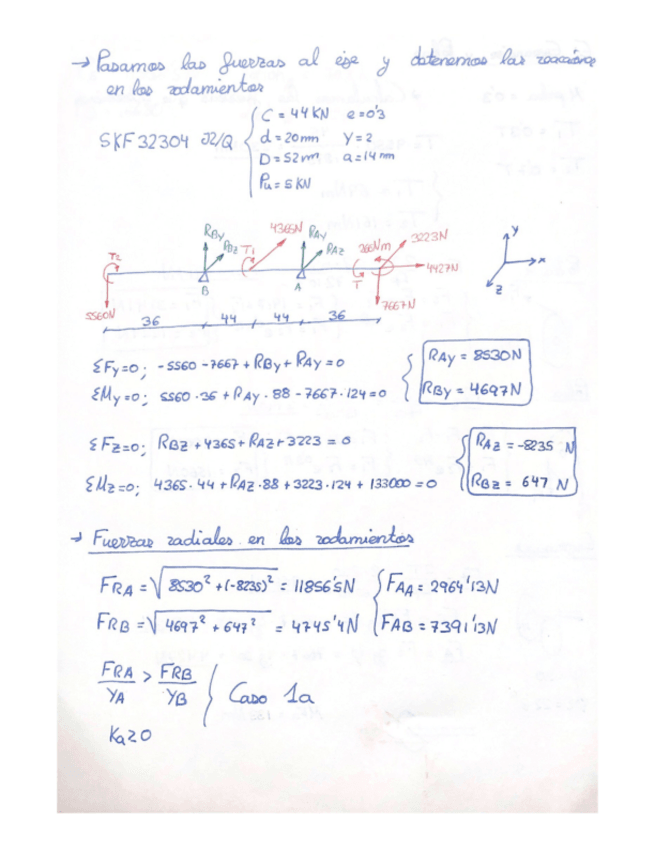 → Pasamos las fuerzas al eje y obtenemos las reacciones
en los rodamientos
SKF 32304 J2/Q
C = 44 KN e = 0'3
d = 20 mm Y = 2
D = 52 mm a = 14 mm
Pu = 5 KN
RBy 4365N RAy 3223N
T2 RBZ T1 RAZ 266Nm
4427N
B A T
5560N 7667N
36 44 44 36
y
x
z
ΣFy=0; -5560 - 7667 + RBy + RAy = 0
ΣMy=0; 5560 · 36 + RAy · 88 - 7667 · 124 = 0
RAy = 8530N
RBy = 4697N
ΣFz=0; RBZ + 4365 + RAZ + 3223 = 0
ΣMz=0; 4365 · 44 + RAZ · 88 + 3223 · 124 + 133000 = 0
RAZ = -8235 N
RBZ = 647 N
→ Fuerzas radiales en los rodamientos
FRA = √8530² + (-8235)² = 11856'5N FAA = 2964'13N
FRB = √4697² + 647² = 4745'4N FAB = 7391'13N
FRA/YA > FRB/YB Caso 1a
Ka≥0